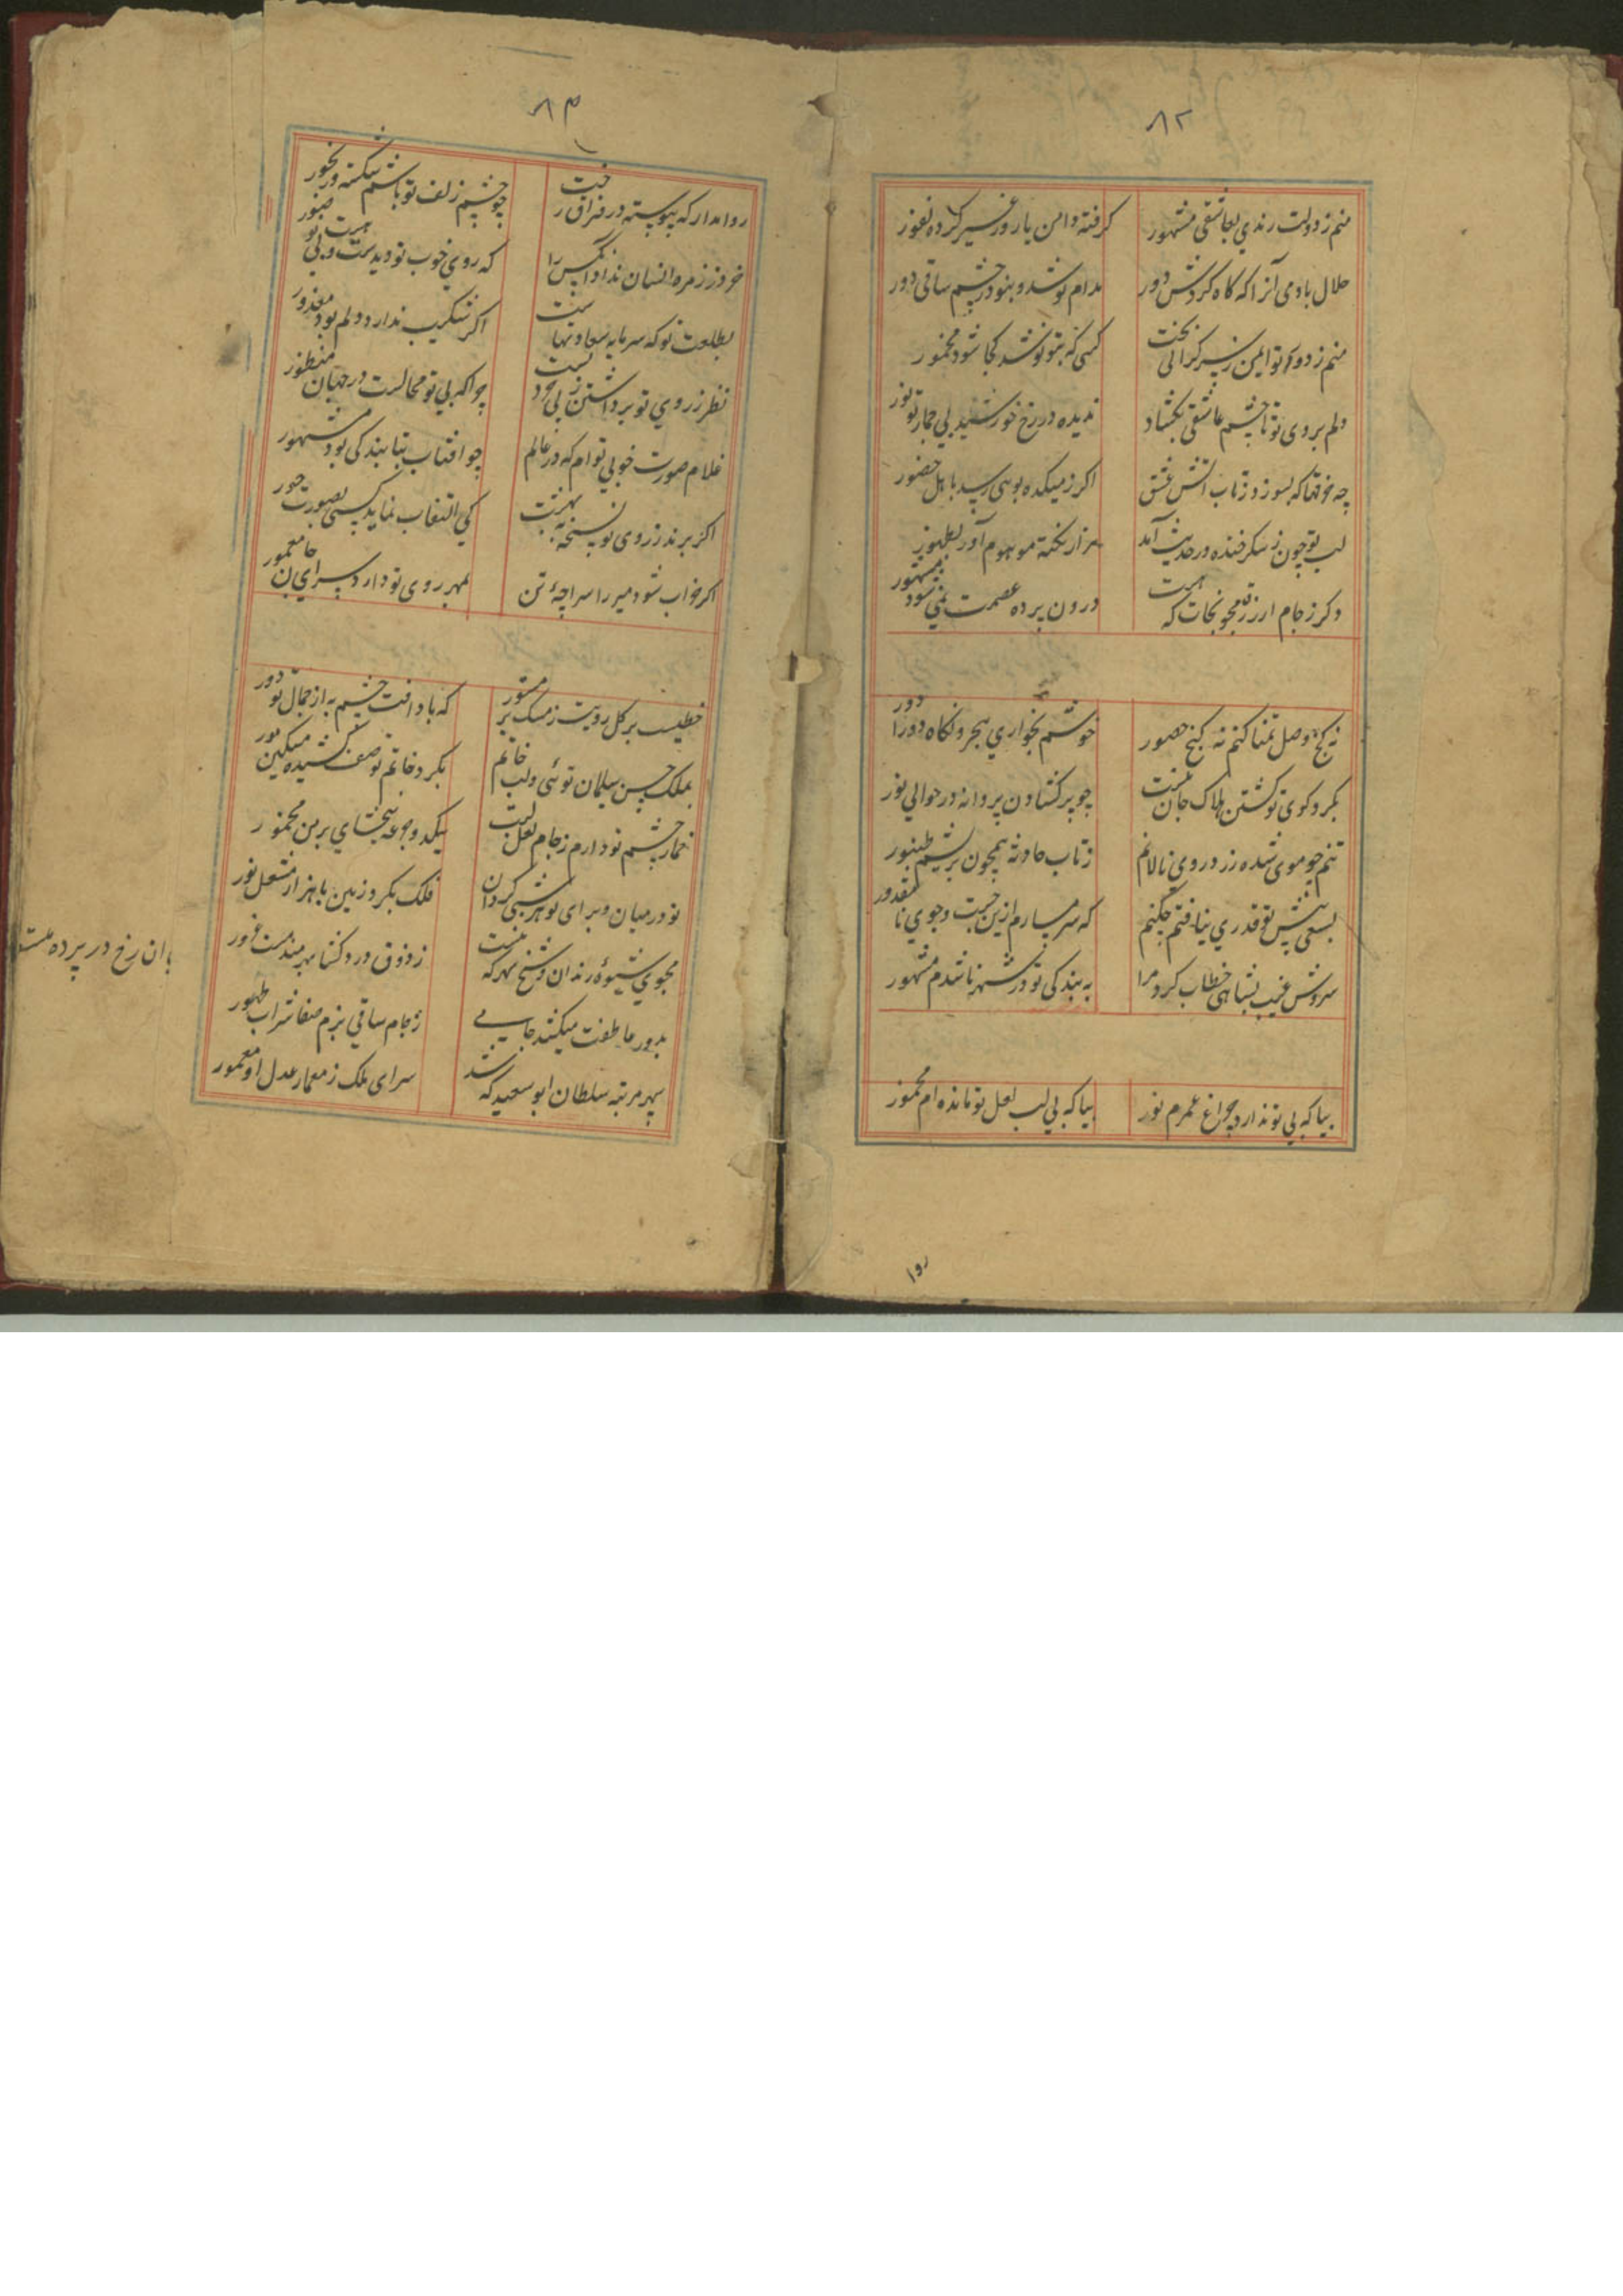 ۸۲
منم ز دولت رندی بعاشقی مشهور
گرفته دامن یار و ز غیر کرده نفور
حلال باد می آنرا که گاه گردش دور
مدام نوشد و بنود ز چشم ساقی دور
کسی که بتو نوشد کجا شود مخمور
دلم بروی تو تا چشم عاشقی بکشاد
ندیده در رخ خورشید بی جمال تو نور
چه خرقها که بسوزد ز تاب آتش عشق
اگر ز میکده بوئی رسد باهل حضور
لب تو چون ز شکر خنده در حدیث آمد
هزار نکته موهوم آورد بظهور
درون پرده عصمت نمی شود مستور
نه گنج وصل تمنا کنم نه کنج حضور
خوشم بخواری هجر و نگاه دورا دور
بگرد کوی تو گشتن هلاک جان منست
چو پر گشادن پروانه در حوالی نور
تنم چو موی شده زرد روی نالانم
ز تاب حادثه همچون بریشم طنبور
بسعی پیش تو قدری نیافتم چکنم
که شرمسارم ازین جست و جوی نا مقدور
سروش غیب بشاهی خطاب کرد مرا
به بندگی تو در شهر تا شدم مشهور
بیا که بی تو ندارد چراغ عمرم نور
بیا که بی لب لعل تو مانده ام مخمور
روا
۸۳
روا مدار که پیوسته در فراق رخت
چو چشم زلف تو باشم شکسته و رنجور
خرد ز زمره انسان ندارد آنکس را
که روی خوب تو دیدست و بی تو هست صبور
بطلعت تو که سرمایه سعادتهاست
اگر شکیب ندارد دلم بود معذور
نظر ز روی تو برداشتن ز بی خودیست
چو آنکه بی تو محالست در جهان منظور
غلام صورت خوبی توام که در عالم
چو افتاب بتابندگی بود مشهور
اگر برند ز روی تو نسخه به بهشت
کی التفات نماید کسی بصورت حور
اگر خراب شود میر را سراچهٔ تن
بمهر روی تو دارد سرای جان معمور
خطیست بر گل رویت ز مشک تر مستور
که باد آفت چشم بد از جمال تو دور
بملک حسن سلیمان توئی و لب خاتم
بگرد خاتم تو صف کشیده مشکین مور
خمار چشم تو دارم ز جام لعل لبت
یکد و جرعه ببخشای بر من مخمور
تو در میان و برای تو هر شبی گردان
فلک بگرد زمین با هزار مشعل نور
مجوی شیوهٔ رندان ز شیخ شهر که نیست
ز ذوق درد کشا بهره مند مست غرور
بدور عاطفت میکشد جامی می
ز جام ساقی بزم صفا شراب طهور
سپهر مرتبه سلطان ابو سعید که شد
سرای ملک ز معمار عدل او معمور